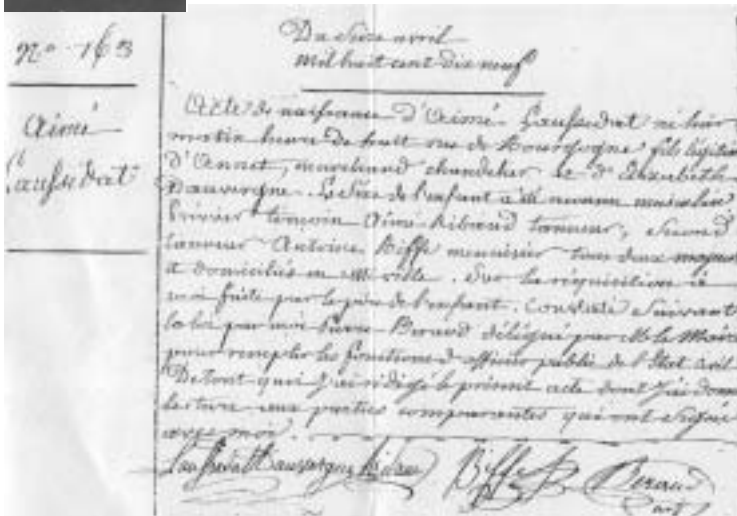 No 163
Aimé
Laussedat
Du Seize avril
mil huit cent dix neuf
Acte de naissance d'Aimé Laussedat né hier
matin heure de huit rue de Bourgogne fils légitime
d'Annet, marchand chandelier et d'Elizabeth
Dauvergne. Le Sexe de l'enfant a été reconnu masculin
Premier témoin Aimé Ribaud tanneur, Second
témoin Antoine Biffe menuisier tous deux majeurs
et domiciliés en cette ville. Sur la réquisition à
moi faite par le père de l'enfant. Constaté Suivant
la loi par moi Pierre Beraud délégué par M. le Maire
pour remplir les fonctions d'officier public de l'Etat civil
De tout quoi j'ai rédigé le présent acte dont j'ai donné
lecture aux parties comparantes qui ont Signé
avec moi.
Laussedat Dauvergne Biffe Beraud